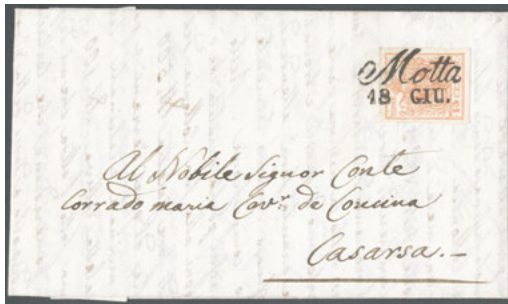 Motta
18 GIU.
Al Nobile Signor Conte
Corrado Maria Cav.r de Concina
Casarsa.-